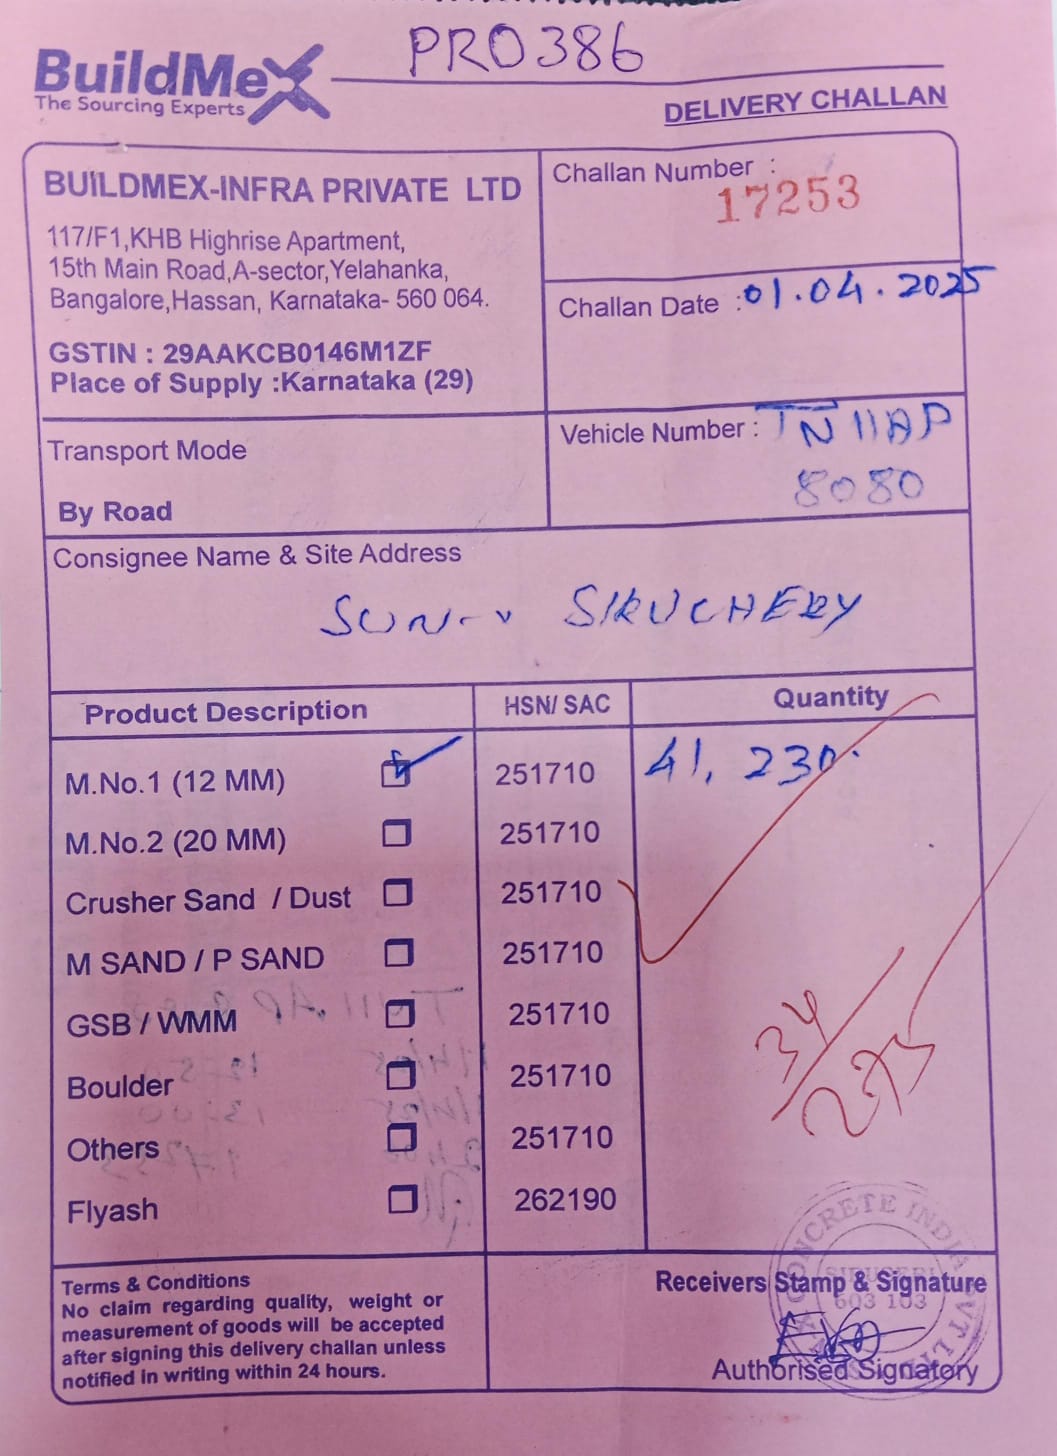 PRO386
BuildMex
The Sourcing Experts
DELIVERY CHALLAN
BUILDMEX-INFRA PRIVATE LTD
117/F1,KHB Highrise Apartment,
15th Main Road,A-sector,Yelahanka,
Bangalore,Hassan, Karnataka- 560 064.
GSTIN : 29AAKCB0146M1ZF
Place of Supply :Karnataka (29)
Challan Number :
17253
Challan Date : 01.04.2025
Transport Mode
By Road
Vehicle Number : TN 11AP
8080
Consignee Name & Site Address
SIRUCHERY
Product Description HSN/ SAC Quantity
M.No.1 (12 MM) 251710 41, 230
M.No.2 (20 MM) 251710
Crusher Sand / Dust 251710
M SAND / P SAND 251710
GSB / WMM 251710
Boulder 251710
Others 251710
Flyash 262190
34/
Terms & Conditions
No claim regarding quality, weight or
measurement of goods will be accepted
after signing this delivery challan unless
notified in writing within 24 hours.
Receivers Stamp & Signature
CONCRETE INDIA PVT LTD
603 103
Authorised Signatory